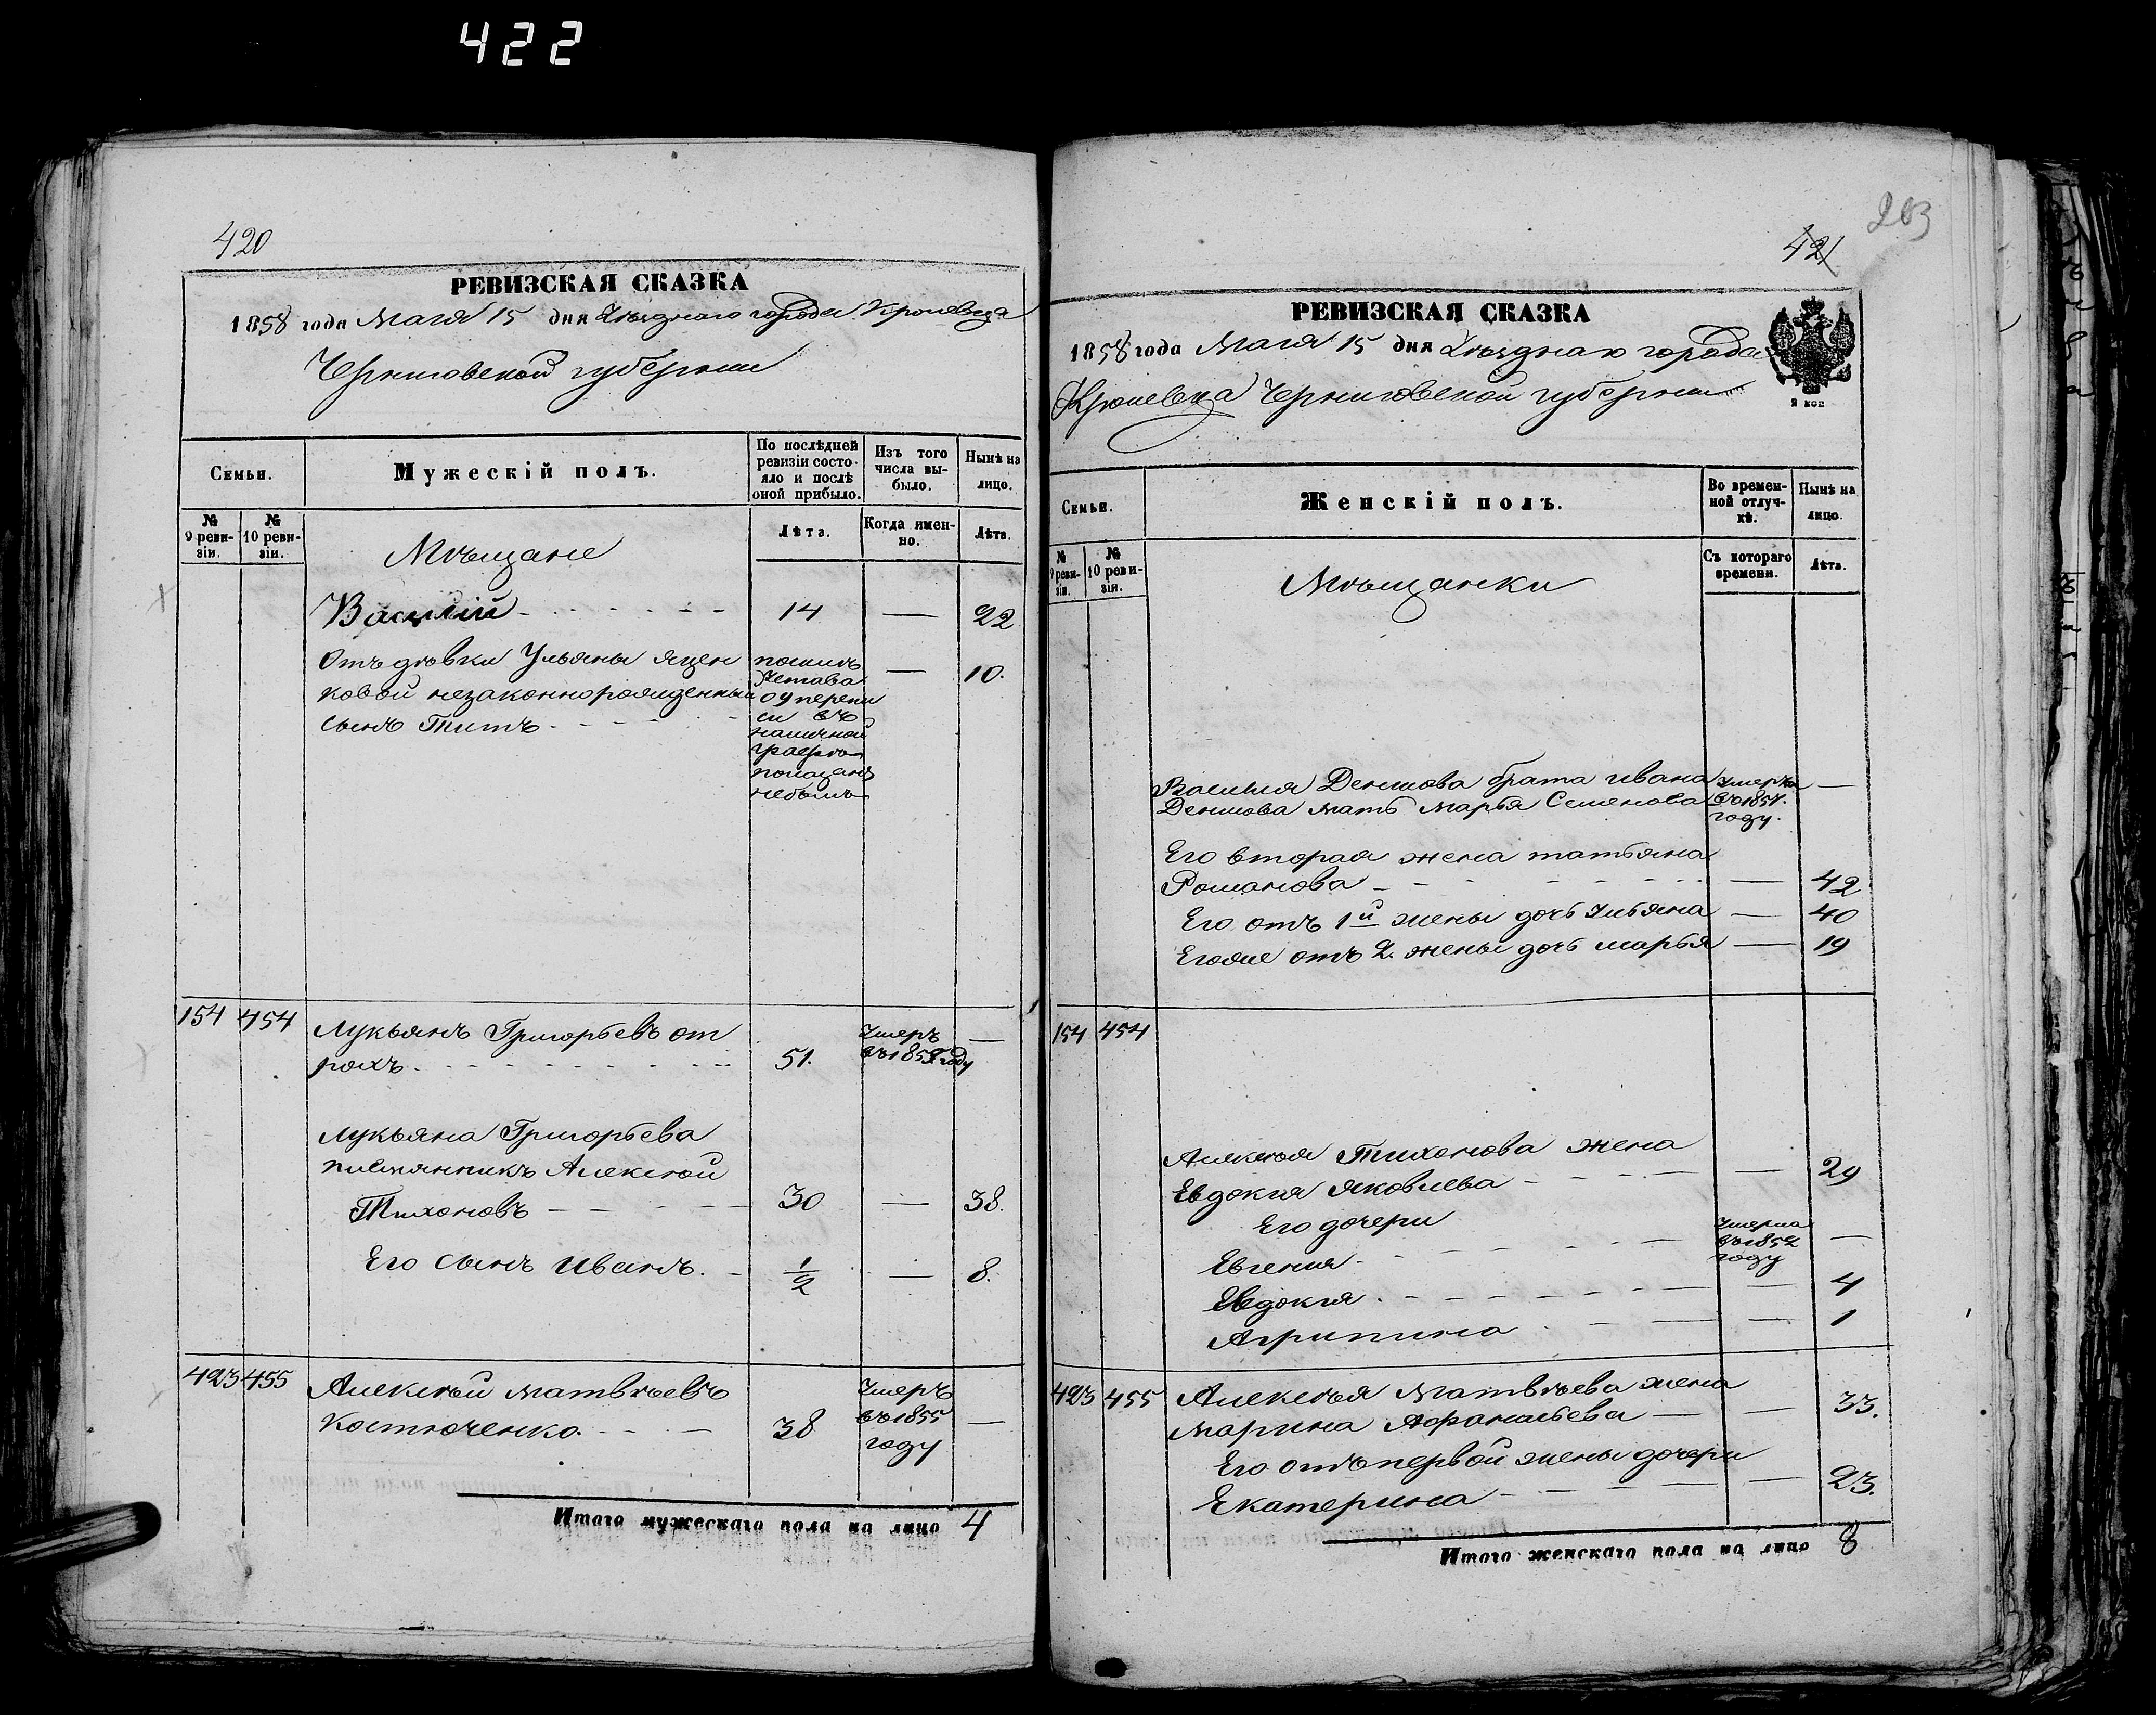 422
420
РЕВИЗСКАЯ СКАЗКА
1858 года Маія 15 дня Уѣзднаго города Кролевца
Черниговской губерніи
Семьи.
Мужескій полъ.
По послѣдней ревизіи состояло и послѣ оной прибыло.
Изъ того числа выбыло.
Нынѣ на лицо.
№ 9 ревизіи.
№ 10 ревизіи.
Мѣщане
Лѣта.
Когда именно.
Лѣта.
Василій - - - - - - 14 — 22
Отъ дѣвки Ульяны Яцен
ковой незаконнорожденный
сынъ Титъ - - - - — 10.
по силѣ
Устава
о 9 перепи
си въ
наличной
графѣ
показанъ
небылъ
154 454 Лукьянъ Григорьевъ От
рохъ - - - - - - - 51. Умеръ въ 185 году —
Лукьяна Григорьева
племянникъ Алексѣй
Тихоновъ - - - - 30 — 38.
Его сынъ Иванъ. - 1/2 — 8.
423 455 Алексѣй Матвѣевъ
Костюченко. - - - 38 Умеръ въ 1855 году —
Итого мужескаго пола на лицо 4
203
421
РЕВИЗСКАЯ СКАЗКА
1858 года Маія 15 дня Уѣзднаго города
Кролевца Черниговской губерніи
Семьи.
Женскій полъ.
Во временной отлучкѣ.
Нынѣ на лицо.
№ 9 ревизіи.
№ 10 ревизіи.
Мѣщанки
Съ котораго времени.
Лѣта.
Василія Денисова брата Ивана
Денисова мать Марья Семенова Умерла въ 1857. году. —
Его вторая жена Татьяна
Романова - - - - - - — 42
Его отъ 1й жены дочь Ульяна — 40
Егоже отъ 2. жены дочь Марья — 19
154 454
Алексѣя Тихонова жена
Евдокия Яковлева - - - — 29
Его дочери
Евгенія - - - - Умерла въ 1852 году —
Евдокия. - - - - - — 4
Агрипина - - - — 1
423 455 Алексѣя Матвѣева жена
Марина Афанасьева — — 33.
Его отъ первой жены дочери
Екатерина - - - - — 23.
Итого женскаго пола на лицо 8